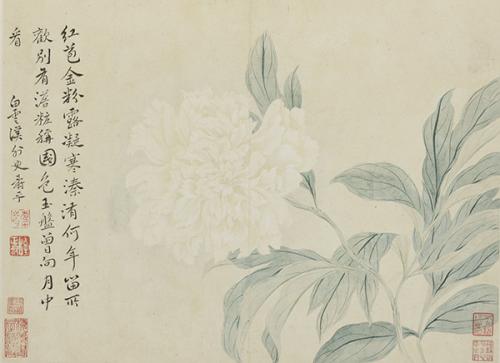 紅苞金粉露凝寒溱洧何年留所
歡別有澹粧稱國色玉盤曾向月中
看
白雲溪外史壽平